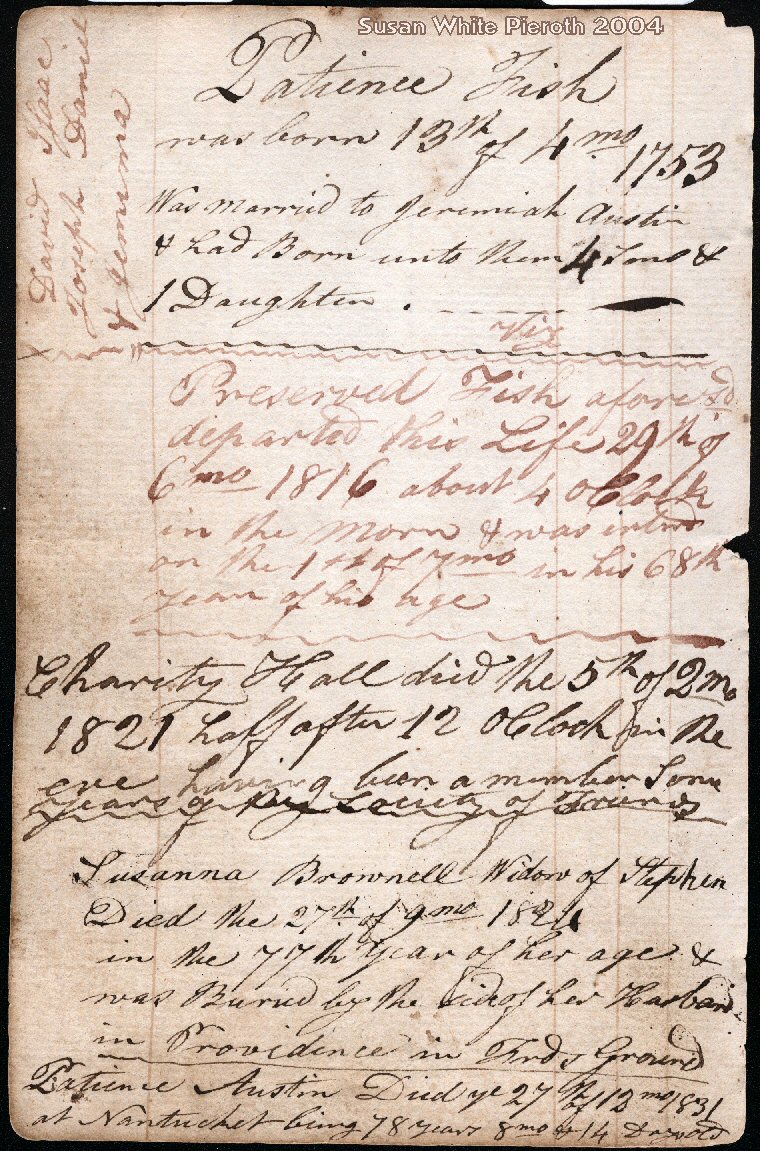 Susan White Pieroth 2004
Patience Fish
was born 13th of 4mo 1753
Was married to Jeremiah Austin
& had Born unto them 4 Sons &
1 Daughter.
Viz
David Isaac
Joseph Daniel
& Jemima
Preserved Fish aforesd
departed this Life 29th of
6mo 1816 about 4 OClock
in the morn & was interd
on the 1st of 7mo in his 68th
year of his age
Charity Hall died the 5th of 2mo
1821 half after 12 OClock in the
eve having been a member Some
years of the Society of Friends
Susanna Brownell Widow of Stephen
Died the 27th of 9mo 1824
in the 77th Year of her age &
was Buried by the side of her Husban
in Providence in Frds Ground
Patience Austin Died ye 27th of 12mo 1831
at Nantucket being 78 years 8mo & 14 Days old